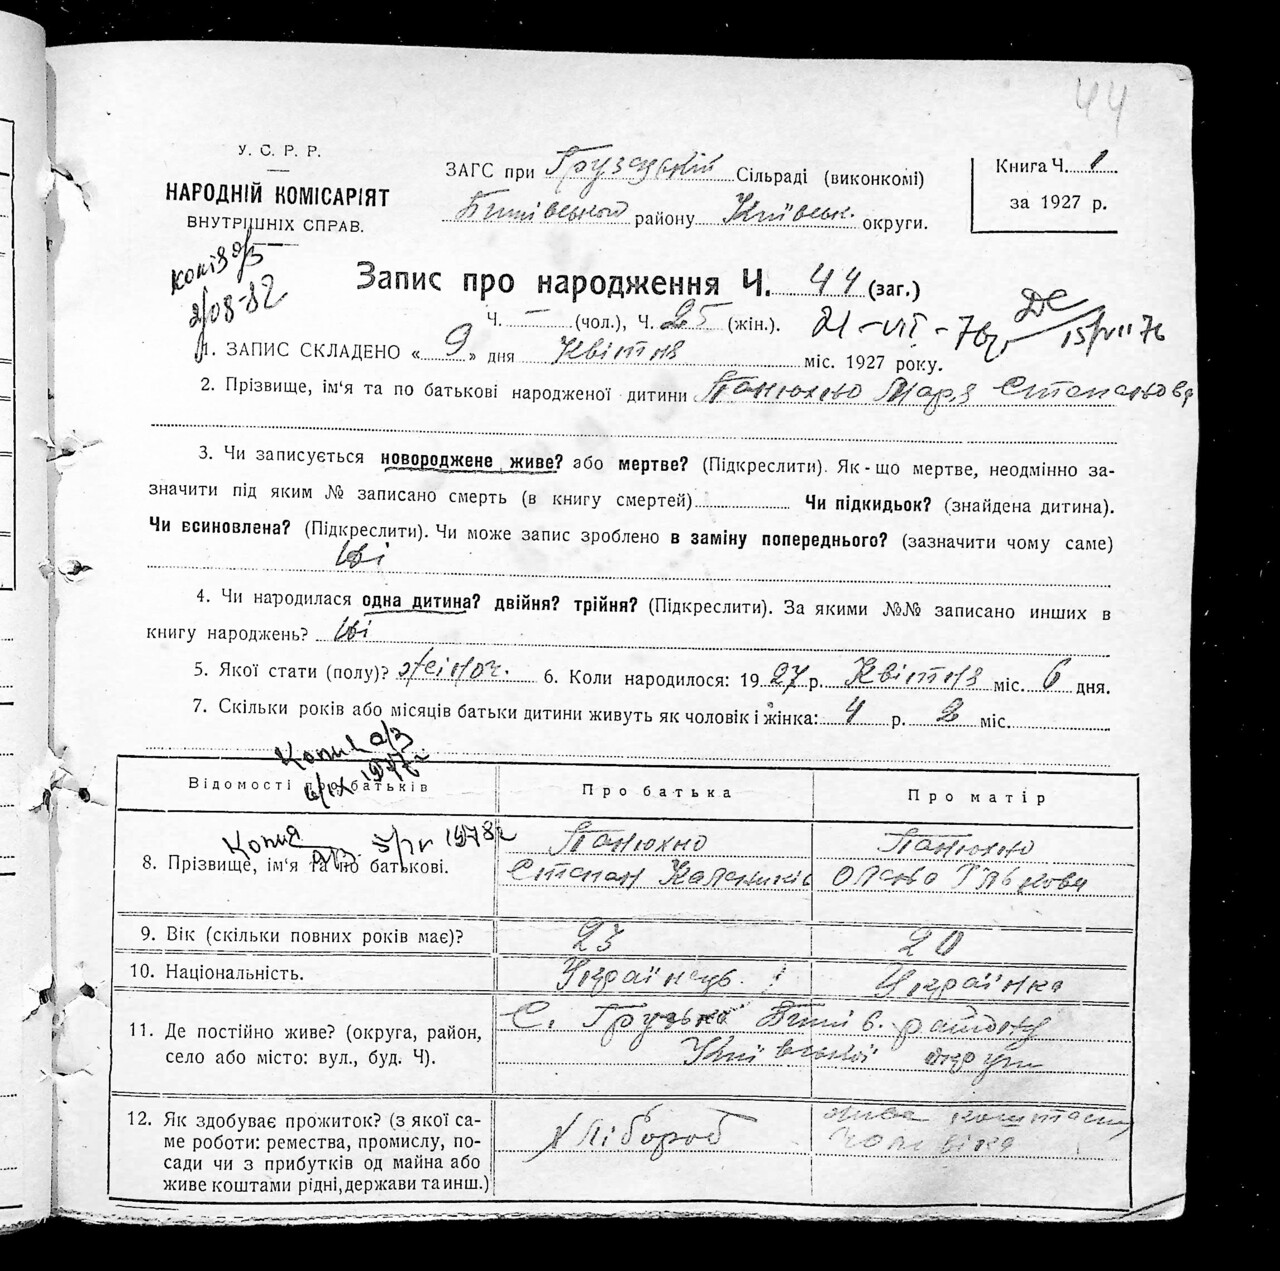 44
У. С. Р. Р.
НАРОДНІЙ КОМІСАРІЯТ
ВНУТРІШНІХ СПРАВ.
ЗАГС при Грузський Сільраді (виконкомі)
Бишівського району Київськ. округи.
Книга Ч. 1
за 1927 р.
копія
2/08-82
Запис про народження Ч. 44 (заг.)
Ч. – (чол.), Ч. 25 (жін.).
21-VII-76
15/VII 76
1. ЗАПИС СКЛАДЕНО « 9 » дня Квітня міс. 1927 року.
2. Прізвище, ім'я та по батькові народженої дитини Панюхно Марія Степанова
3. Чи записується новороджене живе? або мертве? (Підкреслити). Як-що мертве, неодмінно за-
значити під яким № записано смерть (в книгу смертей) Чи підкидьок? (знайдена дитина).
Чи всиновлена? (Підкреслити). Чи може запис зроблено в заміну попереднього? (зазначити чому саме)
Ні
4. Чи народилася одна дитина? двійня? трійня? (Підкреслити). За якими №№ записано инших в
книгу народжень? Ні
5. Якої стати (полу)? жіноч. 6. Коли народилося: 1927 р. Квітня міс. 6 дня.
7. Скільки років або місяців батьки дитини живуть як чоловік і жінка: 4 р. 2 міс.
Копия
1977г
Відомості про батьків
Про батька
Про матір
Копия 1978г
8. Прізвище, ім'я та по батькові.
Панюхно
Степан
Панюхно
9. Вік (скільки повних років має)?
23
20
10. Національність.
Українець
Українка
11. Де постійно живе? (округа, район,
село або місто: вул., буд. Ч).
С. Грузької Бишів. району
Київської округи
12. Як здобуває прожиток? (з якої са-
ме роботи: ремества, промислу, по-
сади чи з прибутків од майна або
живе коштами рідні, держави та инш.)
Хлібороб
жива коштами
чоловіка